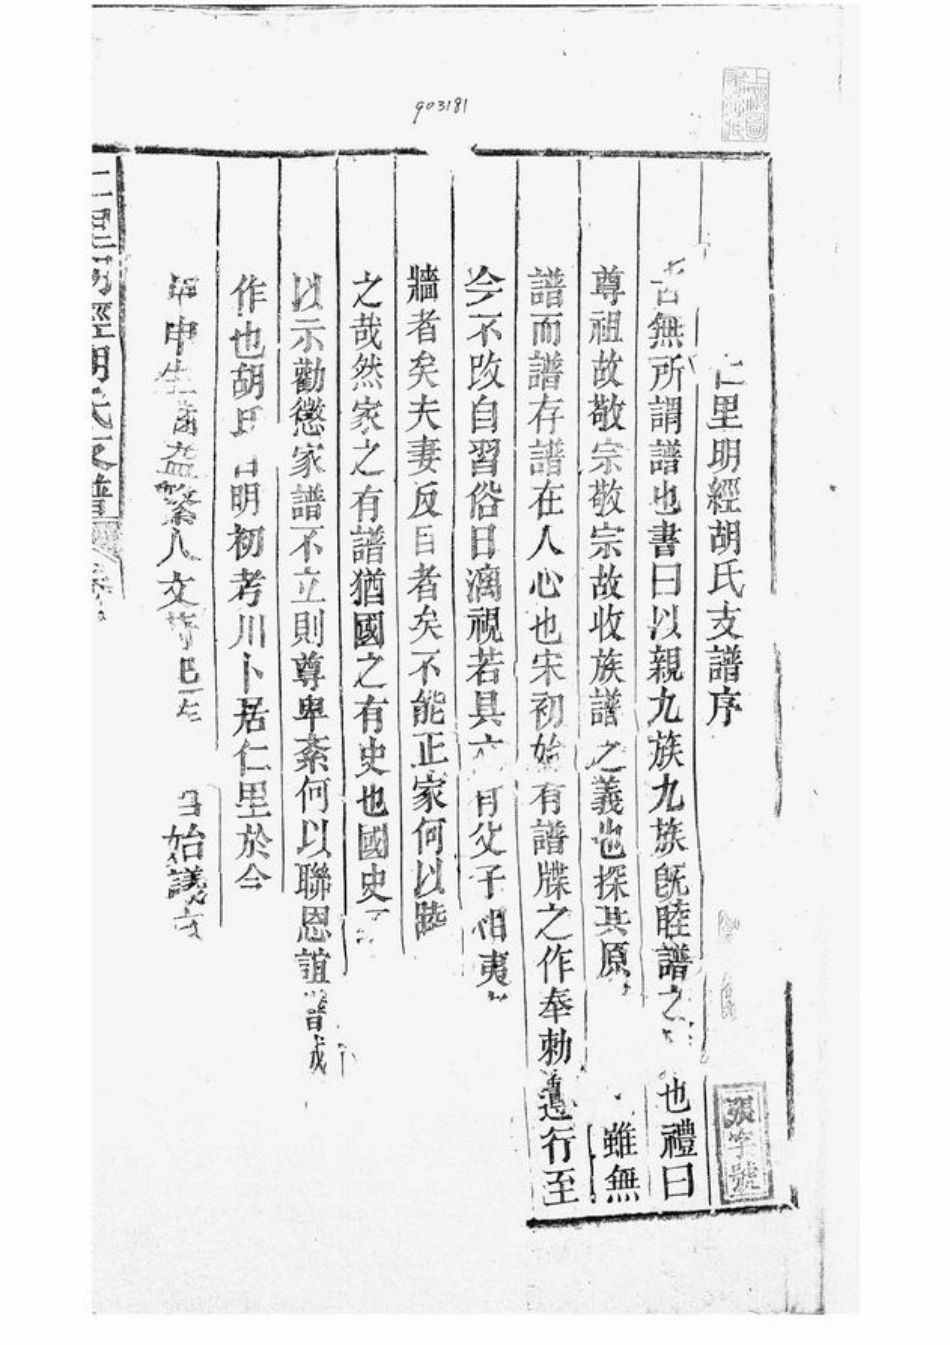 903181
仁里明經胡氏支譜序
張字號
古無所謂譜也書曰以親九族九族既睦譜之也禮曰
尊祖故敬宗敬宗故收族譜之義也探其原雖無
譜而譜存譜在人心也宋初始有譜牒之作奉勅遵行至
今不改自習俗日漓視若具文有父子相夷
牆者矣夫妻反目者矣不能正家何以睦
之哉然家之有譜猶國之有史也國史
以示勸懲家譜不立則尊卑紊何以聯恩誼譜成
作也胡氏自明初考川卜居仁里於今
年申生齒益繁人文始議
仁里明經胡氏支譜